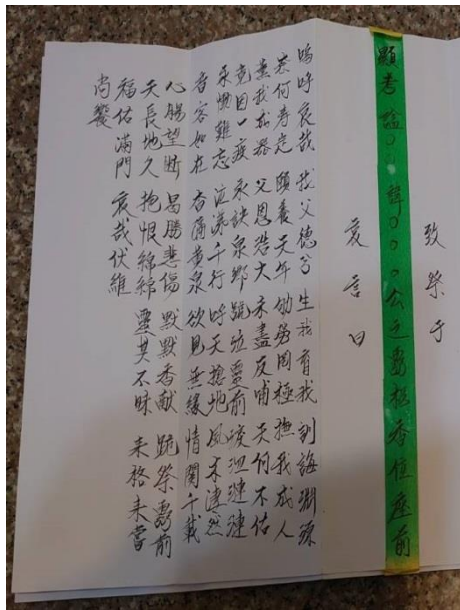 致祭于
顯考諡○○諱○○○公之靈柩香位座前
哀言曰
嗚呼哀哉 我父德兮 生我育我 訓誨渊源
若何壽定 頤養天年 劬勞罔極 撫我成人
薰我成器 父恩浩大 未盡反哺 天何不佑
竟因一疲 永訣泉鄉 跪泣靈前 凌泗漣漣
永懷難忘 泣涕千行 呼天搶地 風木凄然
音容如在 杳隔黄泉 欲見無緣 情関千載
心腸望断 曷勝悲傷 默默香献 跪祭靈前
天長地久 抱恨綿綿 靈其不昧 来格来嘗
福佑滿門 哀哉伏維
尚饗